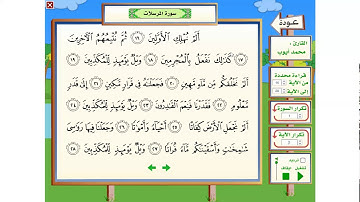 سورة المرسلات
عودة
القارئ :
محمد أيوب
قراءة محددة
من الآية
إلى الآية
تكرار السورة
تكرار الآية
تشغيل
إيقاف
أَلَمْ نُهْلِكِ الْأَوَّلِينَ ﴿١٦﴾ ثُمَّ نُتْبِعُهُمُ الْآخِرِينَ
﴿١٧﴾ كَذَٰلِكَ نَفْعَلُ بِالْمُجْرِمِينَ ﴿١٨﴾ وَيْلٌ يَوْمَئِذٍ لِّلْمُكَذِّبِينَ ﴿١٩﴾
أَلَمْ نَخْلُقكُّم مِّن مَّاءٍ مَّهِينٍ ﴿٢٠﴾ فَجَعَلْنَاهُ فِي قَرَارٍ مَّكِينٍ ﴿٢١﴾ إِلَىٰ قَدَرٍ
مَّعْلُومٍ ﴿٢٢﴾ فَقَدَرْنَا فَنِعْمَ الْقَادِرُونَ ﴿٢٣﴾ وَيْلٌ يَوْمَئِذٍ لِّلْمُكَذِّبِينَ ﴿٢٤﴾
أَلَمْ نَجْعَلِ الْأَرْضَ كِفَاتًا ﴿٢٥﴾ أَحْيَاءً وَأَمْوَاتًا ﴿٢٦﴾ وَجَعَلْنَا فِيهَا رَوَاسِيَ
شَامِخَاتٍ وَأَسْقَيْنَاكُم مَّاءً فُرَاتًا ﴿٢٧﴾ وَيْلٌ يَوْمَئِذٍ لِّلْمُكَذِّبِينَ ﴿٢٨﴾